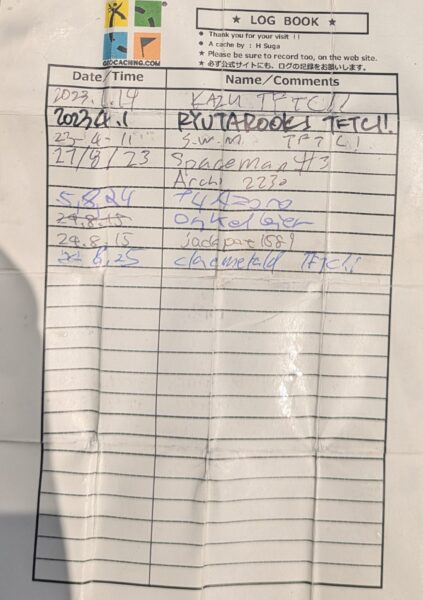 ★ LOG BOOK ★
● Thank you for your visit !!
● A cache by : H Suga
★ Please be sure to record too, on the web site.
★ 必ず公式サイトにも、ログの記録をお願いします。
GEOCACHING.COM
Date/Time Name/Comments
2023.1.14 KAZU TFTC!!
2023.4.1 RYUTAROOKI TFTC!!
23-4-11 S.W.M TFTC!
17/8/23 Spaceman #3
Archi 2230
5,8,24
24.8.15
24.8.15
6,25 TFTC!!